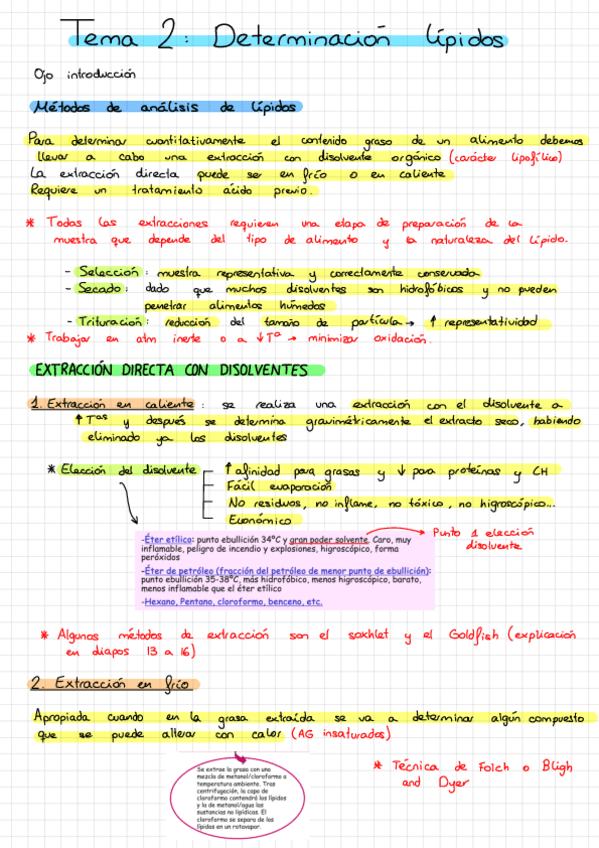 Tema 2: Determinación lípidos
Ojo introducción
Métodos de análisis de lípidos
Para determinar cuantitativamente el contenido graso de un alimento debemos
llevar a cabo una extracción con disolvente orgánico (carácter lipofílico)
La extracción directa puede ser en frío o en caliente
Requiere un tratamiento ácido previo.
* Todas las extracciones requieren una etapa de preparación de la
muestra que depende del tipo de alimento y la naturaleza del lípido.
- Selección: muestra representativa y correctamente conservada
- Secado: dado que muchos disolventes son hidrofóbicos y no pueden
penetrar alimentos húmedos
- Trituración: reducción del tamaño de partícula → ↑ representatividad
* Trabajar en atm inerte o a ↓Tª → minimizar oxidación.
EXTRACCIÓN DIRECTA CON DISOLVENTES
1. Extracción en caliente: se realiza una extracción con el disolvente a
↑Tas y después se determina gravimétricamente el extracto seco, habiendo
eliminado ya los disolventes
* Elección del disolvente
↑ afinidad para grasas y ↓ para proteínas y CH
Fácil evaporación
No residuos, no inflame, no tóxico, no higroscópico...
Económico
-Éter etílico: punto ebullición 34ºC y gran poder solvente. Caro, muy
inflamable, peligro de incendio y explosiones, higroscópico, forma
peróxidos
-Éter de petróleo (fracción del petróleo de menor punto de ebullición):
punto ebullición 35-38ºC, más hidrofóbico, menos higroscópico, barato,
menos inflamable que el éter etílico
-Hexano, Pentano, cloroformo, benceno, etc.
Punto 1 elección
disolvente
* Algunos métodos de extracción son el soxhlet y el Goldfish (explicación
en diapos 13 a 16)
2. Extracción en frío
Apropiada cuando en la grasa extraída se va a determinar algún compuesto
que se puede alterar con calor (AG insaturados)
Se extrae la grasa con una
mezcla de metanol/cloroformo a
temperatura ambiente. Tras
centrifugación, la capa de
cloroformo contendrá los lípidos
y la de metanol/agua las
sustancias no lipídicas. El
cloroformo se separa de los
lípidos en un rotavapor.
* Técnica de Folch o Bligh
and Dyer